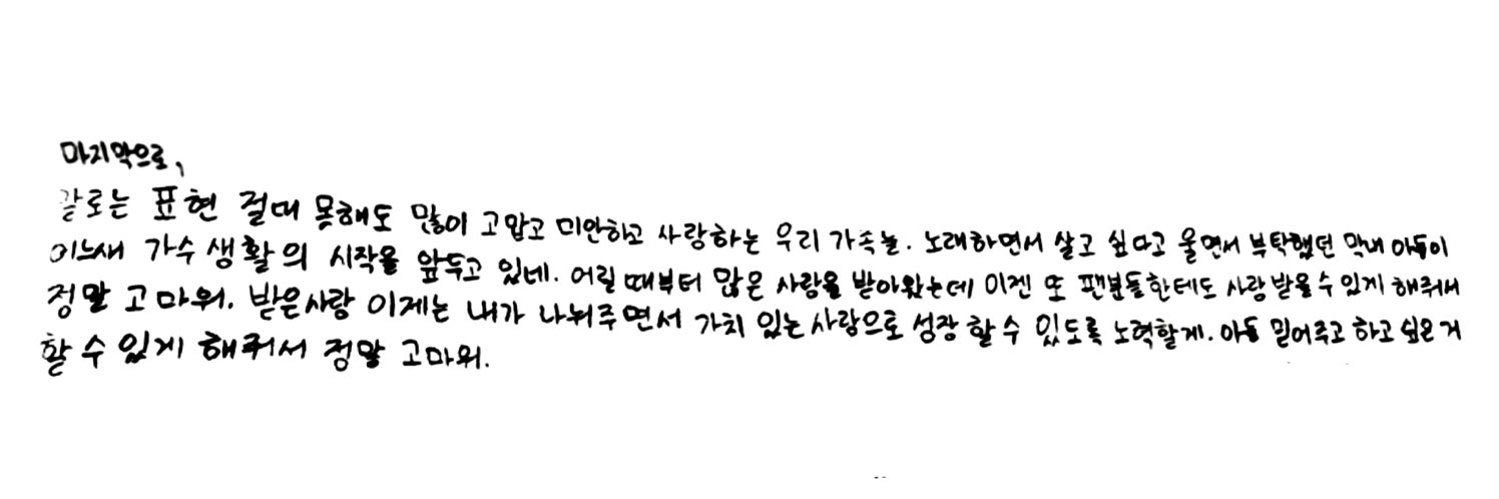 마지막으로,
말로는 표현 절대 못해도 많이 고맙고 미안하고 사랑하는 우리 가족들. 노래하면서 살고 싶다고 울면서 부탁했던 막내 아들이
어느새 가수 생활의 시작을 앞두고 있네. 어릴 때부터 많은 사랑을 받아왔는데 이젠 또 팬분들한테도 사랑 받을 수 있게 해줘서
정말 고마워. 받은 사랑 이제는 내가 나눠주면서 가치 있는 사람으로 성장 할 수 있도록 노력할게. 아들 믿어주고 하고 싶은 거
할 수 있게 해줘서 정말 고마워.